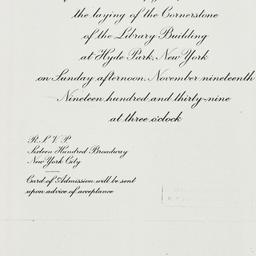 the laying of the Cornerstone
of the Library Building
at Hyde Park, New York
on Sunday afternoon November nineteenth
Nineteen hundred and thirty-nine
at three o'clock
R. S. V. P.
Sixteen Hundred Broadway
New York City
Card of Admission will be sent
upon advice of acceptance